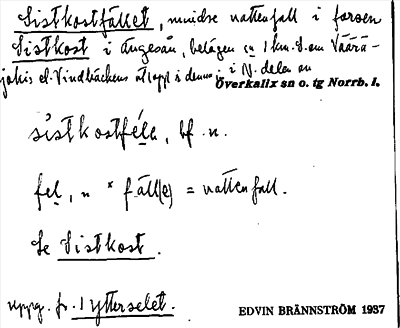 Sistkostfället, mindre vattenfall i forsen
Sistkost i Ängesån, belägen ca 1 km S. om Väärä-
jokis el. Vindbäckens utlopp i denna i N. delen av
Överkalix sn o. tg Norrb. l.
sistkostféļn, bf. n.
feļ, n * fäll(e) = vattenfall.
Se Sistkost.
uppg. fr. Ytterselet.
EDVIN BRÄNNSTRÖM 1937